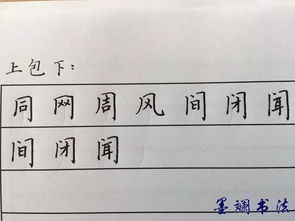 上包下：
同网周风间闭闻
间闭闻
墨斓书法